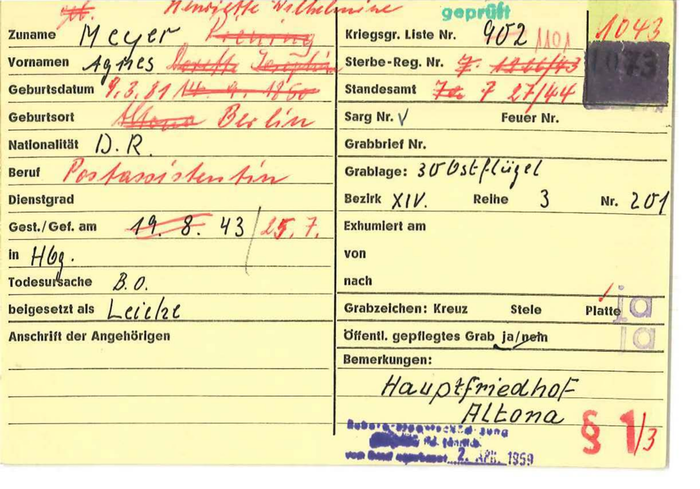 geb. Henriette Wilhelmine
Zuname Meyer
Vornamen Agnes
Geburtsdatum 9.3.81 14. 9. 1860
Geburtsort Altona Berlin
Nationalität D.R.
Beruf Postassistentin
Dienstgrad
Gest./Gef. am 19. 8. 43 / 25. 7.
in Hbg.
Todesursache B.O.
beigesetzt als Leiche
Anschrift der Angehörigen
geprüft
Kriegsgr. Liste Nr. 902 1101
1043
1073
Sterbe-Reg. Nr. 7. 1266/43
Standesamt 7a 7 27/44
Sarg Nr. Feuer Nr.
Grabbrief Nr.
Grablage: 30 Ostflügel
Bezirk XIV. Reihe 3 Nr. 201
Exhumiert am
von
nach
Grabzeichen: Kreuz Stele Platte ja
Öffentl. gepflegtes Grab ja/nein ja
Bemerkungen:
Hauptfriedhof
Altona
§ 1/3
2. Apr. 1959